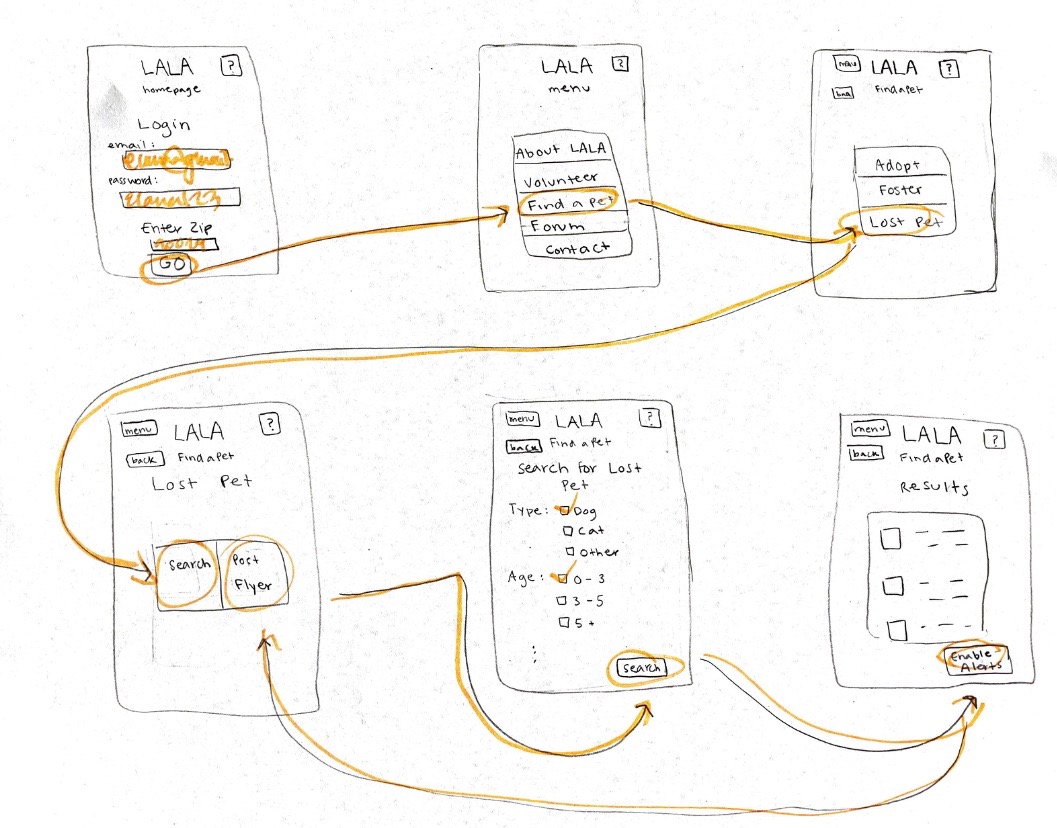 LALA ?
homepage
Login
email:
password:
Enter Zip
GO
LALA ?
menu
About LALA
Volunteer
Find a Pet
Forum
Contact
menu LALA ?
back Find a Pet
Adopt
Foster
Lost Pet
menu LALA ?
back Find a Pet
Lost Pet
Search
Post
Flyer
menu LALA ?
back Find a Pet
Search for Lost
Pet
Type: Dog
Cat
Other
Age: 0-3
3-5
5+
Search
menu LALA ?
back Find a Pet
Results
Enable
Alerts